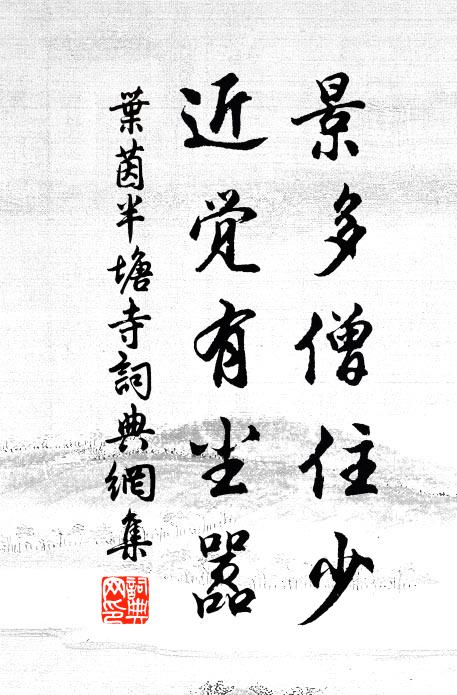 景多僧住少
近觉有尘嚣
葉茵半塘寺詞典網集
詞典网印